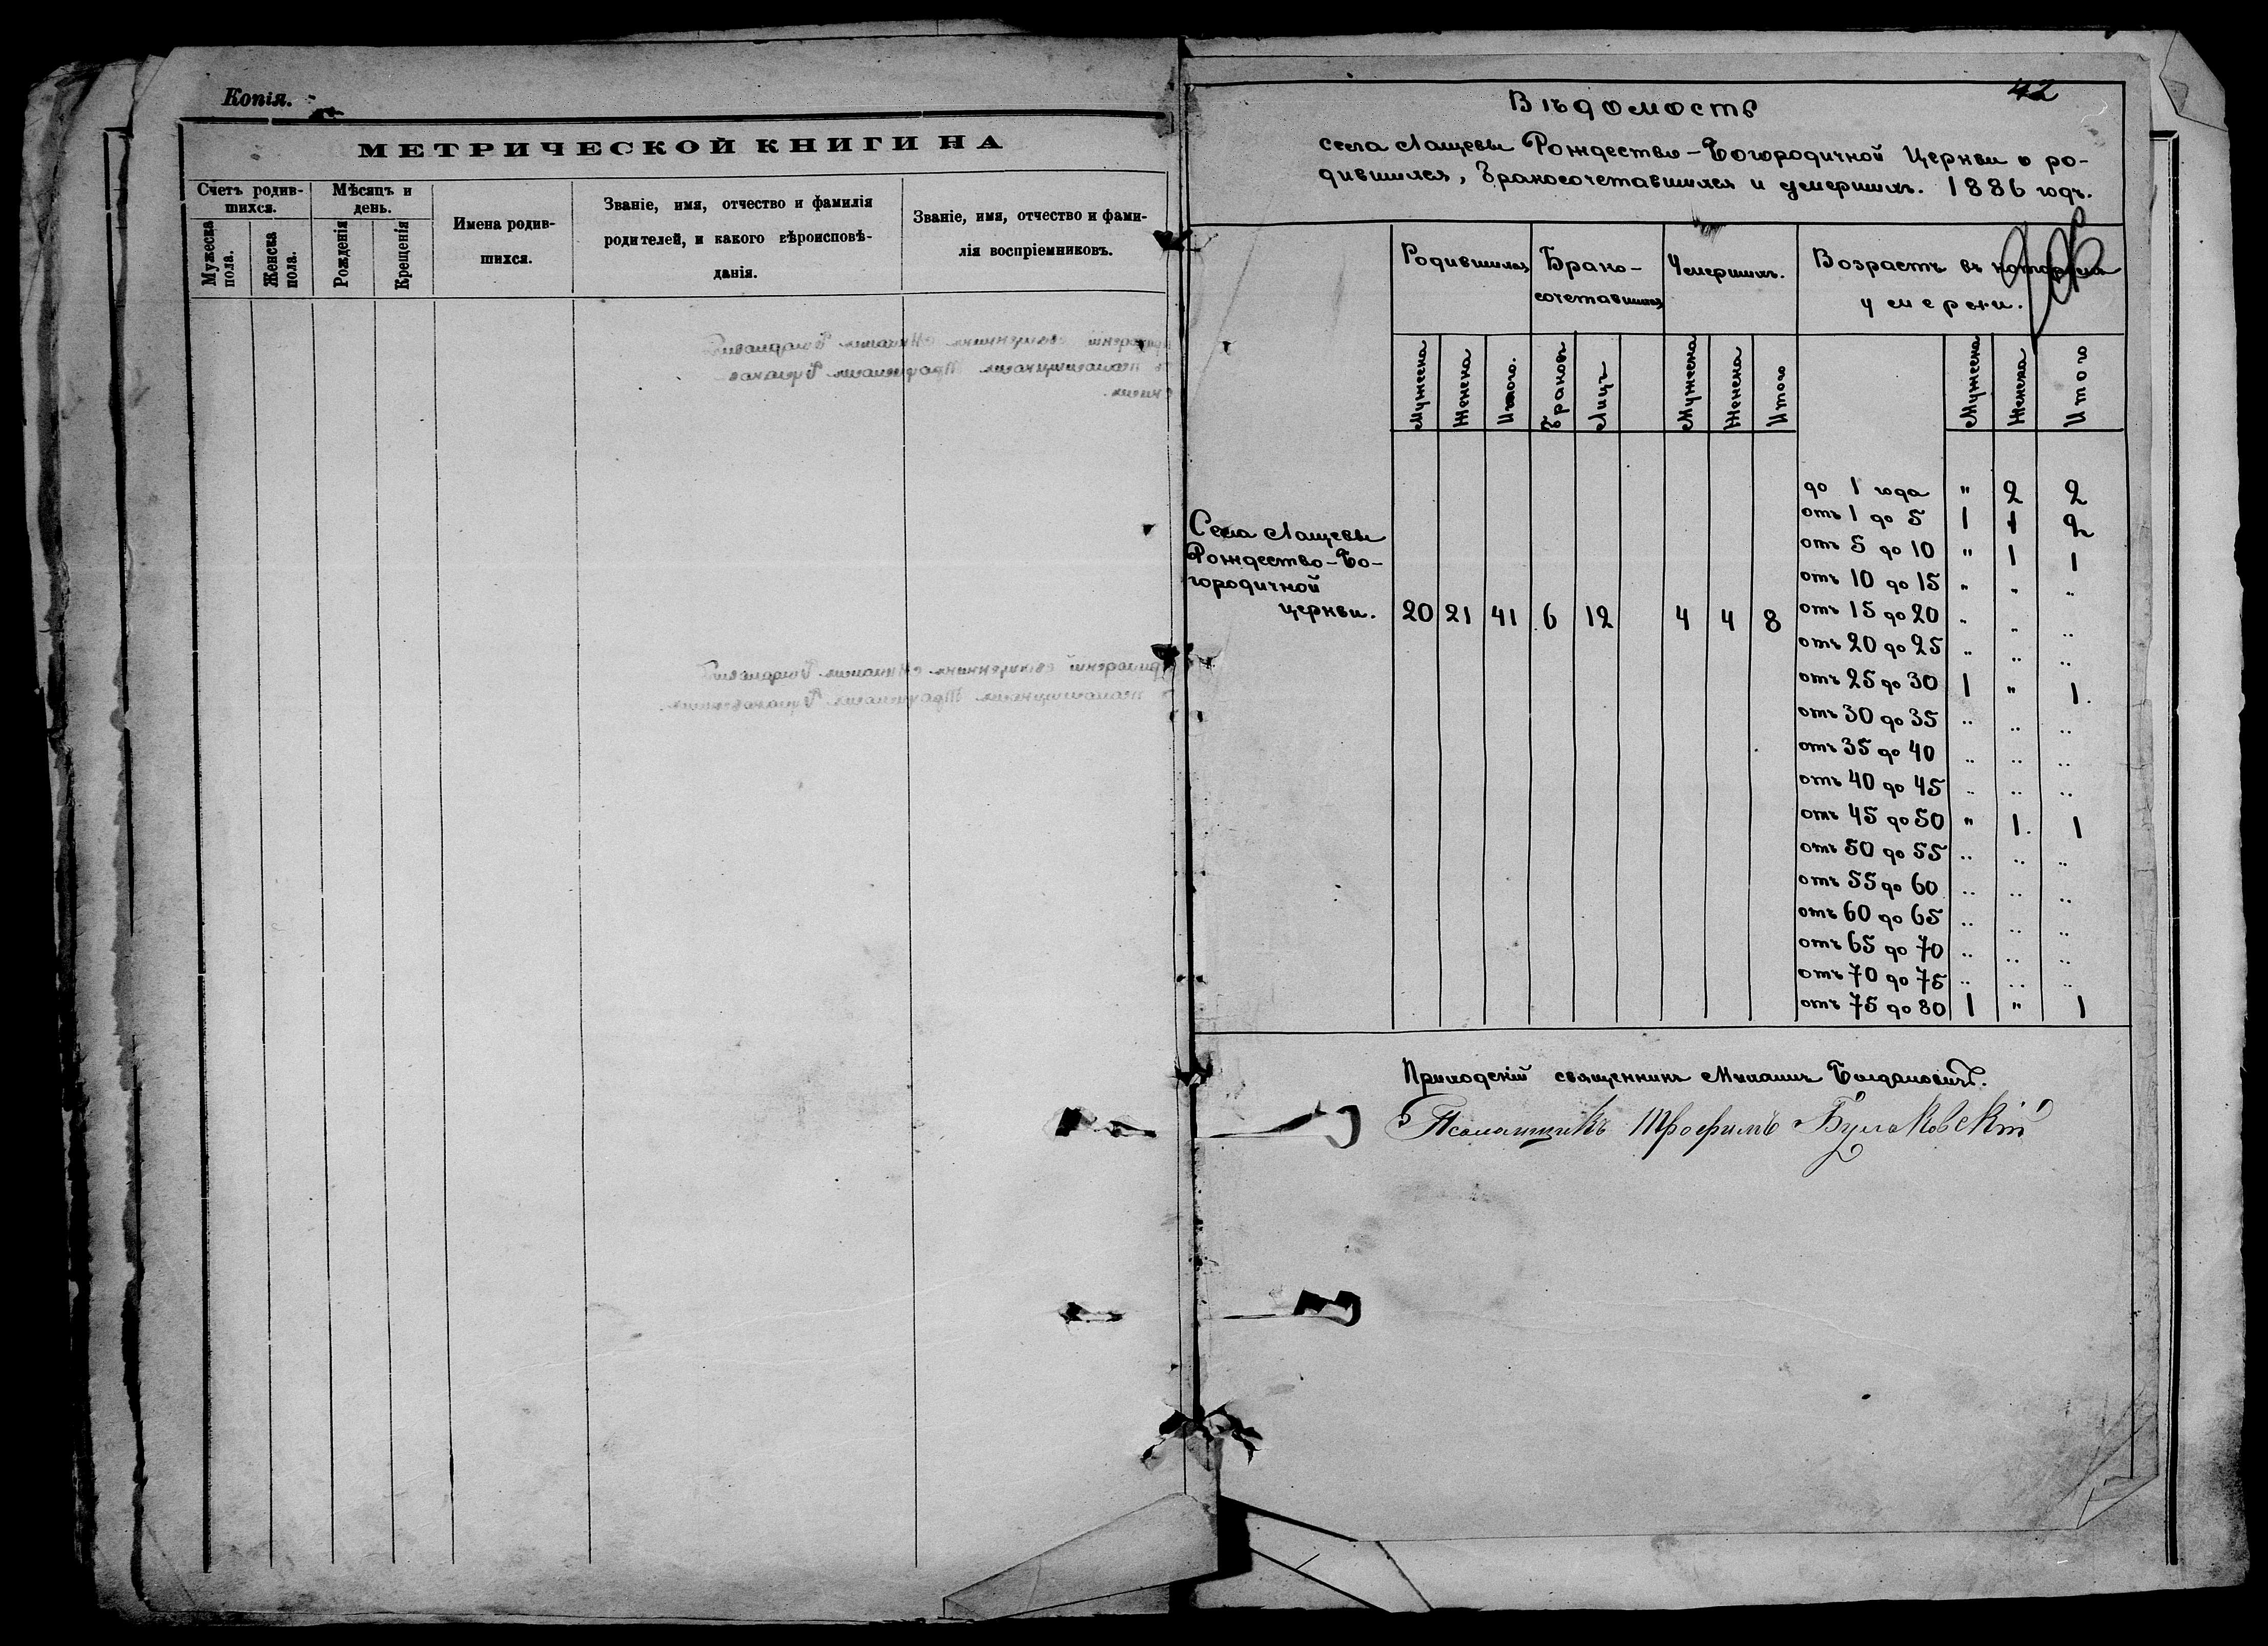 Копія.
МЕТРИЧЕСКОЙ КНИГИ НА
Счетъ родив-
шихся.
Мѣсяцъ и
день.
Мужеска
пола.
Женска
пола.
Рожденія
Крещенія
Имена родив-
шихся.
Званіе, имя, отчество и фамилія
родителей, и какого вѣроисповѣ-
данія.
Званіе, имя, отчество и фами-
лія воспріемниковъ.
42
Вѣдомость
села Лащевы Рождество-Богородичной Церкви о ро-
дившихся, бракосочетавшихся и умершихъ. 1886 годъ.
Родившихся
Брако-
сочетавшихся
Умершихъ.
Возрастъ въ которомъ
умерли.
Мужеска
Женска
Итого.
Браковъ
Лицъ
Мужеска
Женска
Итого
Мужеска
Женска
Итого
Села Лащевы
Рождество-Бо-
городичной
церкви. 20 21 41 6 12 4 4 8
до 1 года " 2 2
отъ 1 до 5 1 1 2
отъ 5 до 10 " 1 1
отъ 10 до 15 " " "
отъ 15 до 20 " " "
отъ 20 до 25 " " "
отъ 25 до 30 1 " 1.
отъ 30 до 35 " " "
отъ 35 до 40 " " "
отъ 40 до 45 " " "
отъ 45 до 50 " 1. 1
отъ 50 до 55 " " "
отъ 55 до 60 " " "
отъ 60 до 65 " " "
отъ 65 до 70 " " "
отъ 70 до 75 " " "
отъ 75 до 80 1 " 1
Приходскій священникъ Михаилъ Богдановичъ.
Псаломщикъ Трофимъ Булаковскій